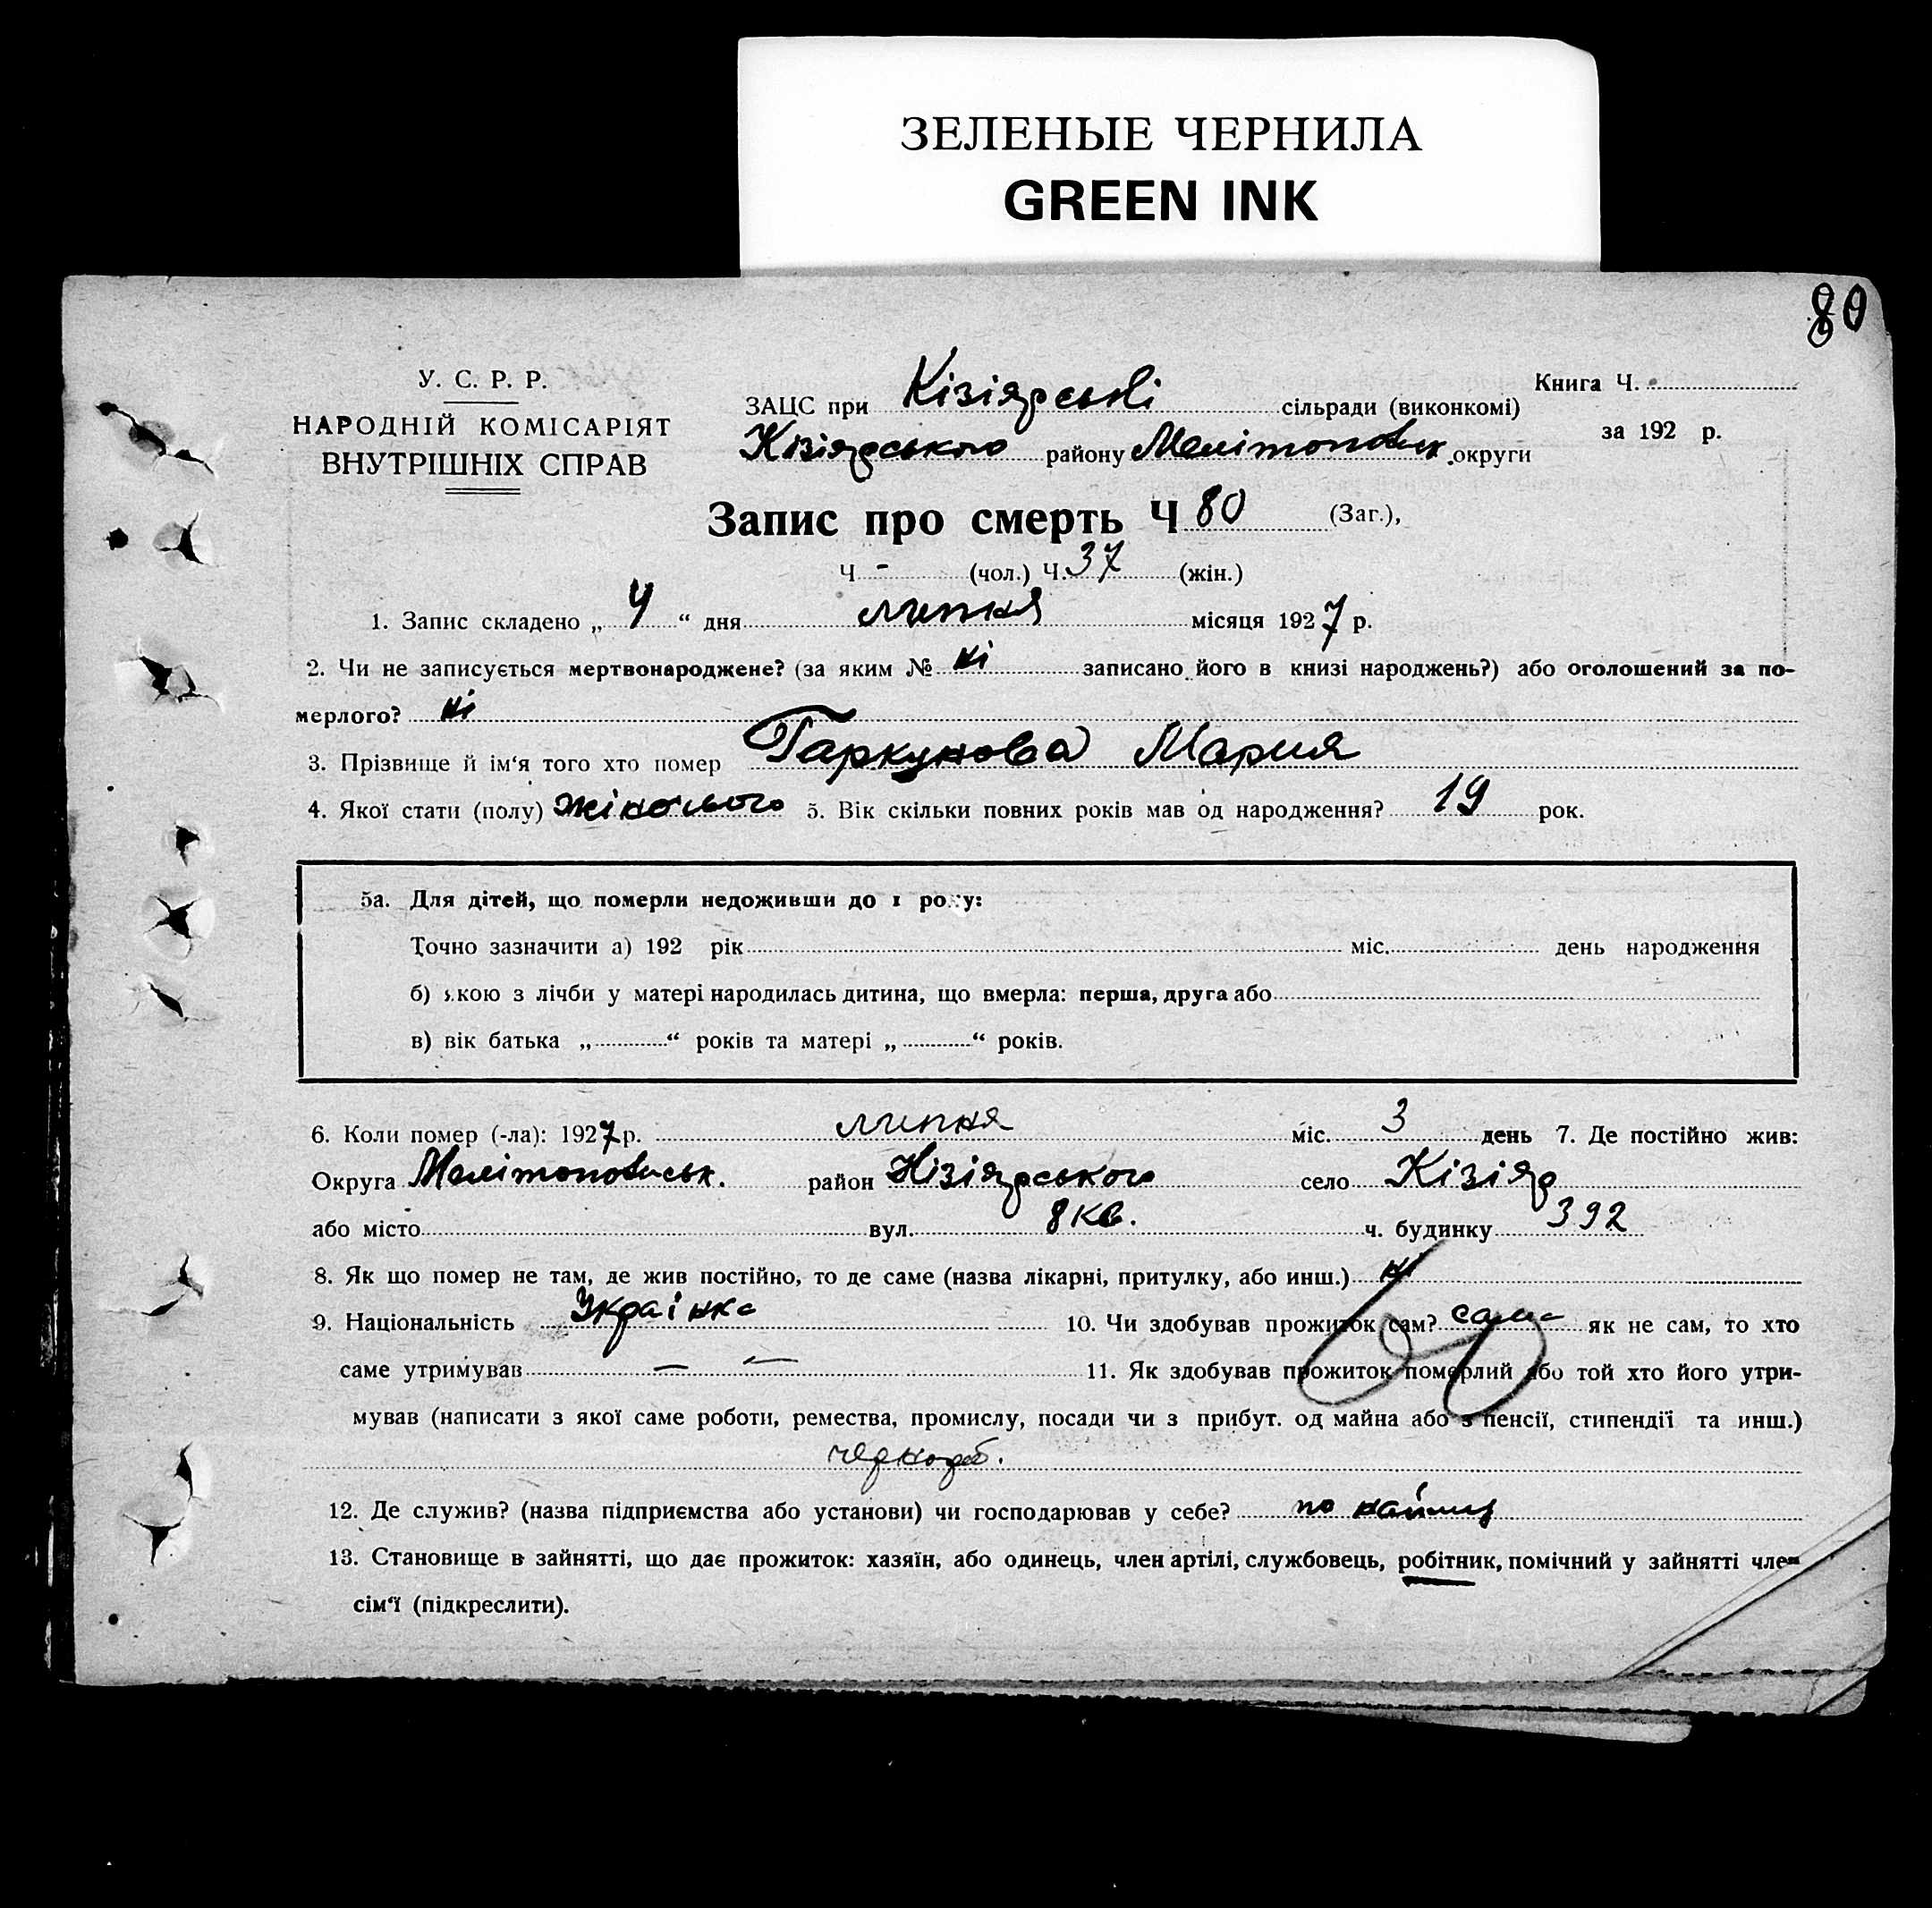 ЗЕЛЕНЫЕ ЧЕРНИЛА
GREEN INK
80
У. С. Р. Р.
НАРОДНІЙ КОМІСАРІЯТ
ВНУТРІШНІХ СПРАВ
Книга Ч.
за 192 р.
ЗАЦС при Кізіярські сільради (виконкомі)
Кізіярського району Мелітоповськ. округи
Запис про смерть Ч 80 (Заг.),
Ч - (чол.) Ч. 37 (жін.)
1. Запис складено „ 4 “ дня липня місяця 1927 р.
2. Чи не записується мертвонароджене? (за яким № ні записано його в книзі народжень?) або оголошений за по-
мерлого? ні
3. Прізвище й ім‘я того хто помер Гаркунова Мария
4. Якої стати (полу) жіночього 5. Вік скільки повних років мав од народження? 19 рок.
5а. Для дітей, що померли недоживши до 1 року:
Точно зазначити а) 192 рік міс. день народження
б) якою з лічби у матері народилась дитина, що вмерла: перша, друга або
в) вік батька „ “ років та матері „ “ років.
6. Коли помер (-ла): 1927 р. липня міс. 3 день 7. Де постійно жив:
Округа Мелітоповськ. район Кізіярського село Кізіяр
або місто вул. 8 кв. ч. будинку 392
8. Як що помер не там, де жив постійно, то де саме (назва лікарні, притулку, або инш.) ні
9. Національність Українка 10. Чи здобував прожиток сам? сама як не сам, то хто
саме утримував — — 11. Як здобував прожиток померлий або той хто його утри-
мував (написати з якої саме роботи, ремества, промислу, посади чи з прибут. од майна або з пенсії, стипендії та инш.)
чернороб.
12. Де служив? (назва підприємства або установи) чи господарював у себе? по найму
13. Становище в зайнятті, що дає прожиток: хазяїн, або одинець, член артілі, службовець, робітник, помічний у зайнятті член
сім‘ї (підкреслити).